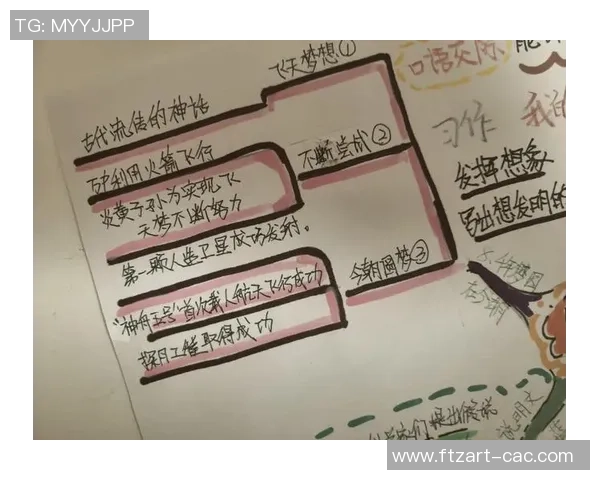 TG: MYYJJPP
飞天梦想①
古代流传的神话
万户利用火箭飞行
不断尝试②
炎黄子孙为实现飞
天梦不断努力
第一颗人造卫星成功发射。
今朝圆梦③
"神舟五号"首次载人航天飞行成功
探月工程取得成功
口语交际
习作
我的
发挥想象
写出想发明的
千年梦圆
在今朝
提出假说
说明文
www.ftzart-cac.com